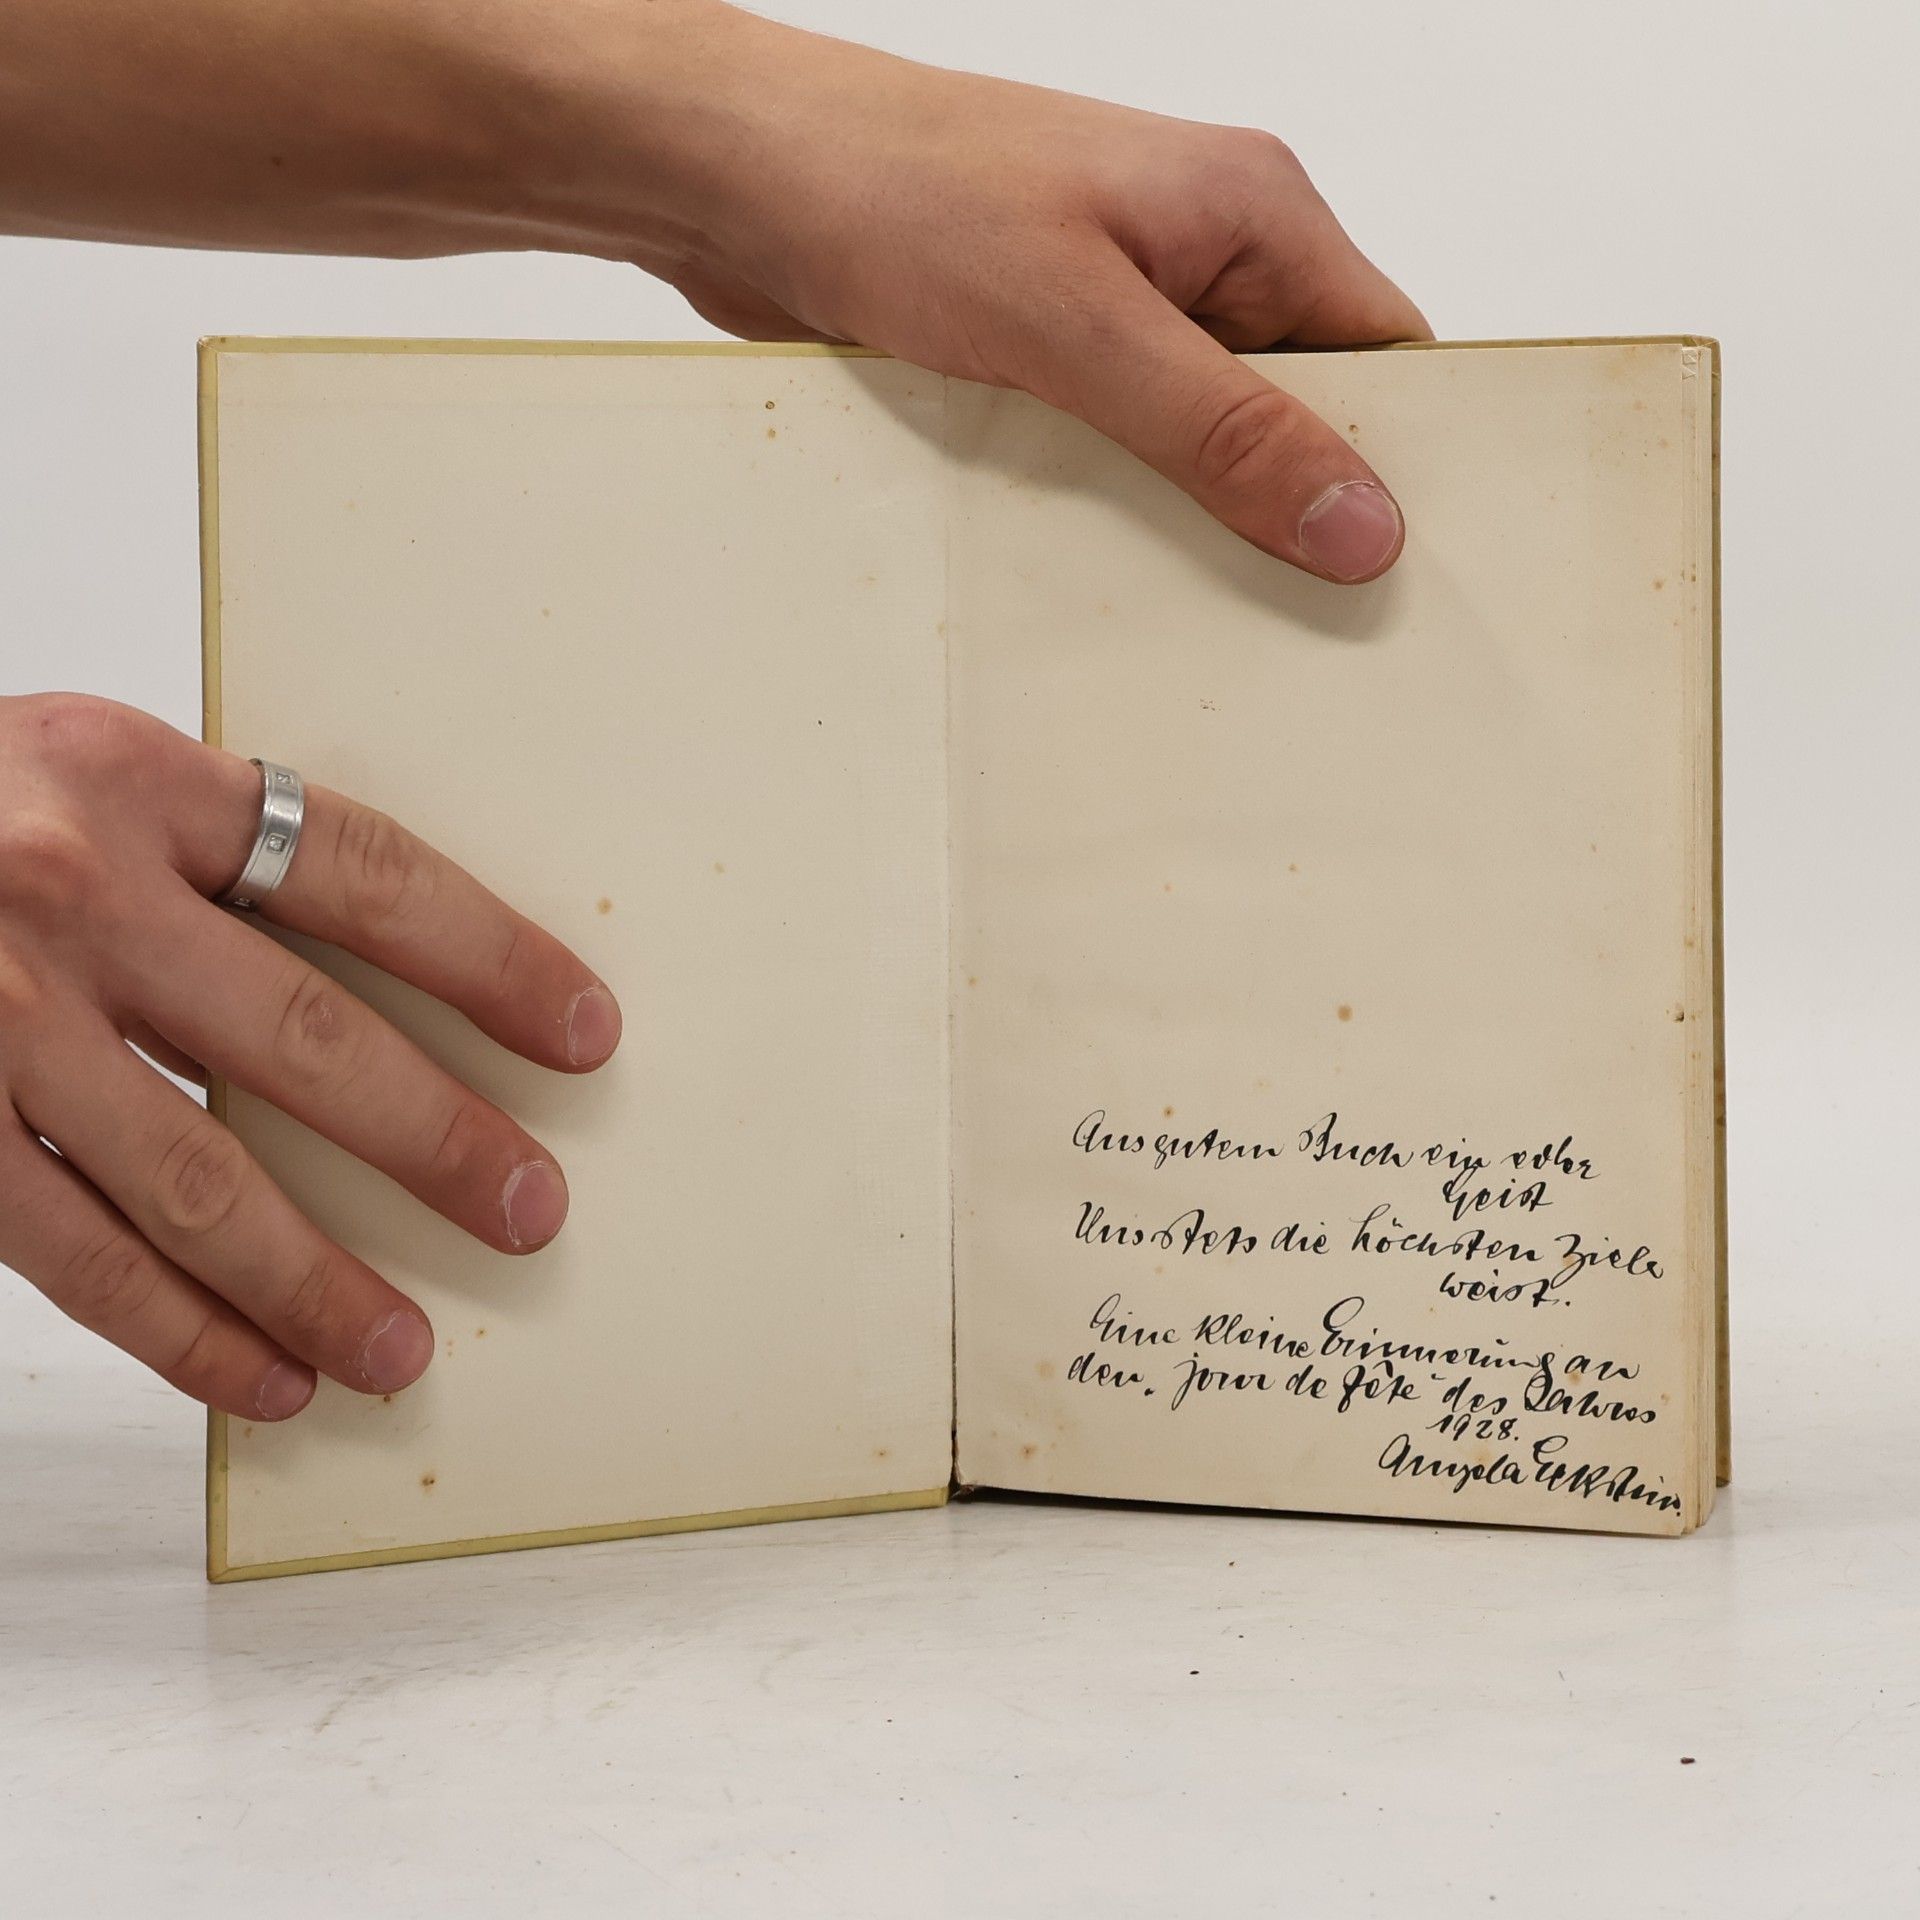 Aus gutem Buch ein edler
Geist
Uns stets die höchsten Ziele
weist.
Eine kleine Erinnerung an
den „jour de fête“ des Jahres
1928.
Angela Eckstein.